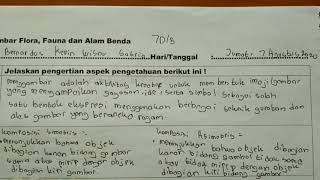 mbar Flora, Fauna dan Alam Benda
7D/3
Bernardus Kevin Wisnu Satria Hari/Tanggal Jumat, 7 Agustus 2020
Jelaskan pengertian aspek pengetahuan berikut ini !
menggambar adalah aktivitas kreatif untuk membentuk imaji/gambar
yang menyampaikan gagasan, ide, serta simbol sebagai salah
satu bentuk ekspresi menggunakan berbagai teknik gambar dan
alat gambar yang beraneka ragam.
komposisi simetris :
• menunjukkan bahwa objek
dibagian kanan bidang gambar
sama atau mirip dengan objek
dibagian kiri gambar
komposisi Asimetris :
• menunjukkan bahwa objek dibagian
kanan bidang gambar tidak sama
atau tidak mirip dengan objek
dibagian kiri bidang gambar